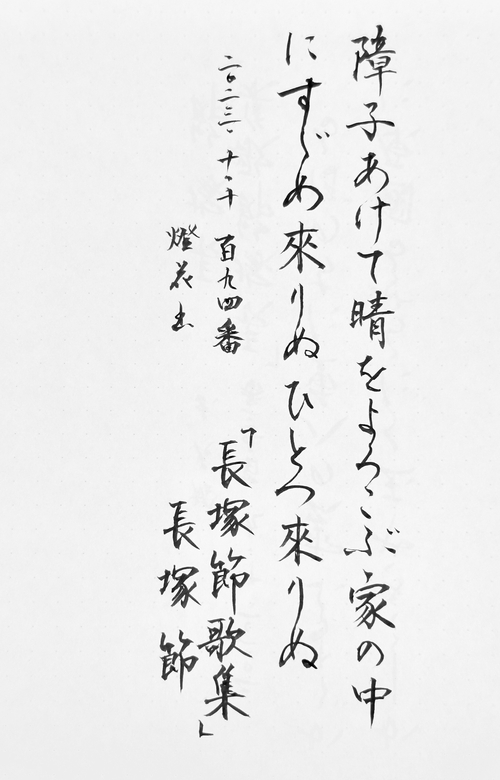 障子あけて晴をよろこぶ家の中
にすゞめ來りぬひとつ來りぬ
二〇二三、十、十 百九四番 「長塚節歌集」
燈花 長塚節